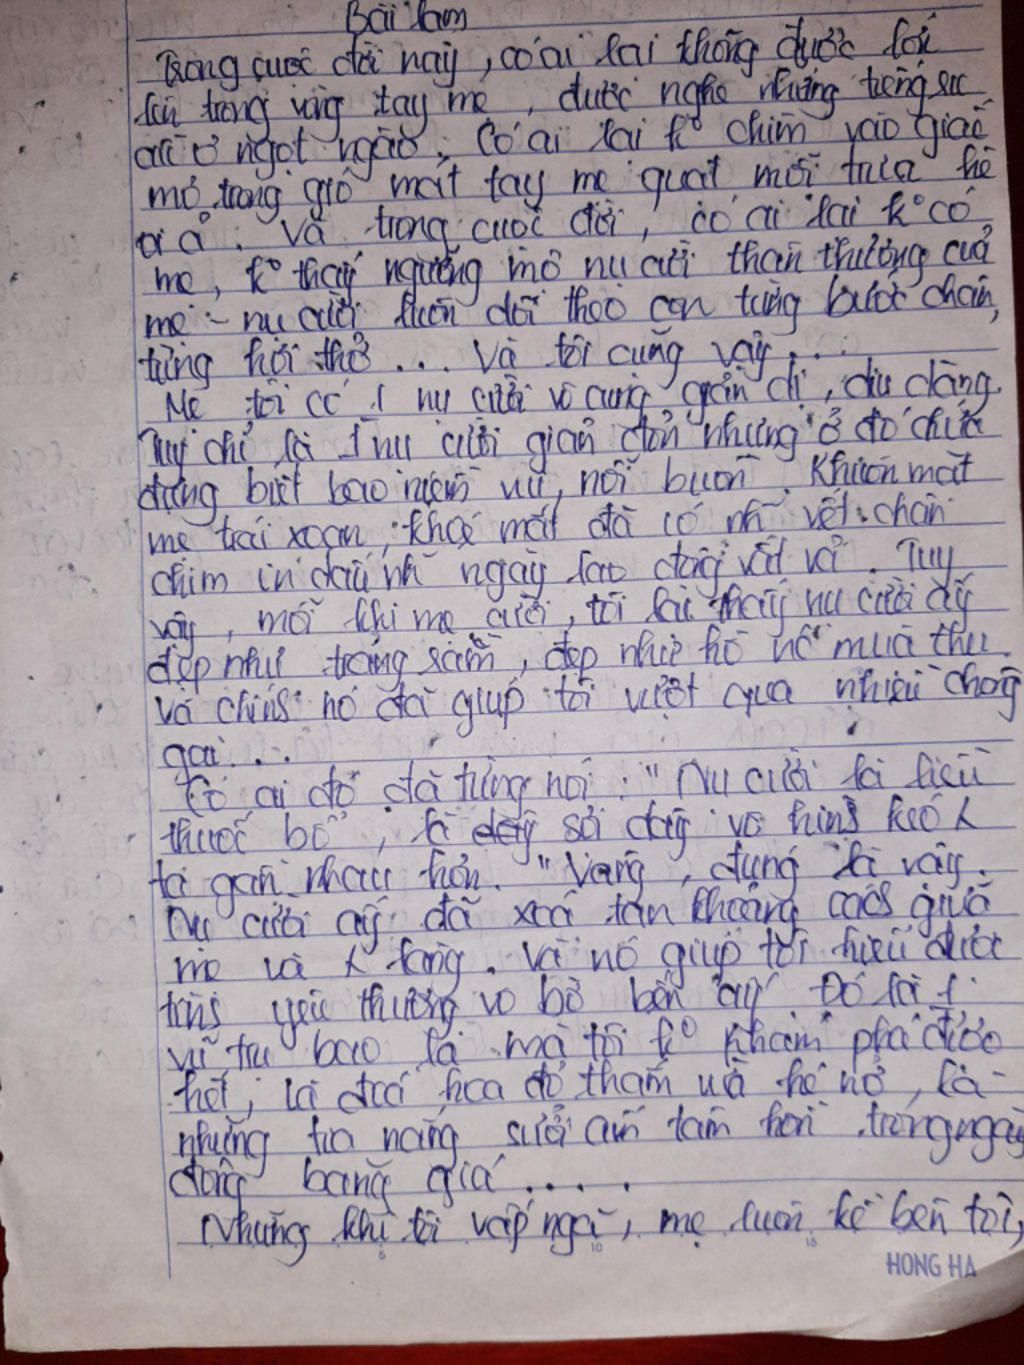 Bài làm
Trong cuộc đời này, có ai lại không được lớn
lên trong vòng tay mẹ, được nghe những tiếng
ơi ngọt ngào. Có ai lại ko chìm vào giấc
mơ trong gió mát tay mẹ quạt mỗi trưa hè
ơi ả. Và trong cuộc đời, có ai lại ko có
mẹ, ko thấy ngưỡng mộ nụ cười thân thương của
mẹ - nụ cười luôn dõi theo con từng bước chân,
từng hơi thở ... Và tôi cũng vậy ...
Mẹ tôi có 1 nụ cười vô cùng giản dị, dịu dàng.
Tuy chỉ là 1 nụ cười giản đơn nhưng ở đó chứa
đựng biết bao niềm vui, nỗi buồn. Khuôn mặt
mẹ trái xoan, khoé mắt đã có nh~ vết chân
chim in dấu nh~ ngày lao động vất vả. Tuy
vậy, mỗi khi mẹ cười, tôi lại thấy nụ cười ấy
đẹp như trăng rằm, đẹp như hồ mùa thu.
Và chính nó đã giúp tôi vượt qua nhiều chông
gai...
Có ai đó đã từng nói: "Nụ cười là liều
thuốc bổ", là sợi dây vô hình kéo
ta gần nhau hơn." Vâng, đúng là vậy.
Nụ cười ấy đã xoá tan khoảng cách giữa
mẹ và lòng. Và nó giúp tôi hiểu được
tình yêu thương vô bờ bến ấy. Đó là 1
vũ trụ bao la mà tôi ko khám phá được
hết, là đoá hoa đỏ thắm mùa hè nở, là
những tia nắng sưởi ấm tâm hồn trong ngày
đông băng giá ....
Những khi tôi vấp ngã, mẹ luôn kề bên tôi,
HONG HA